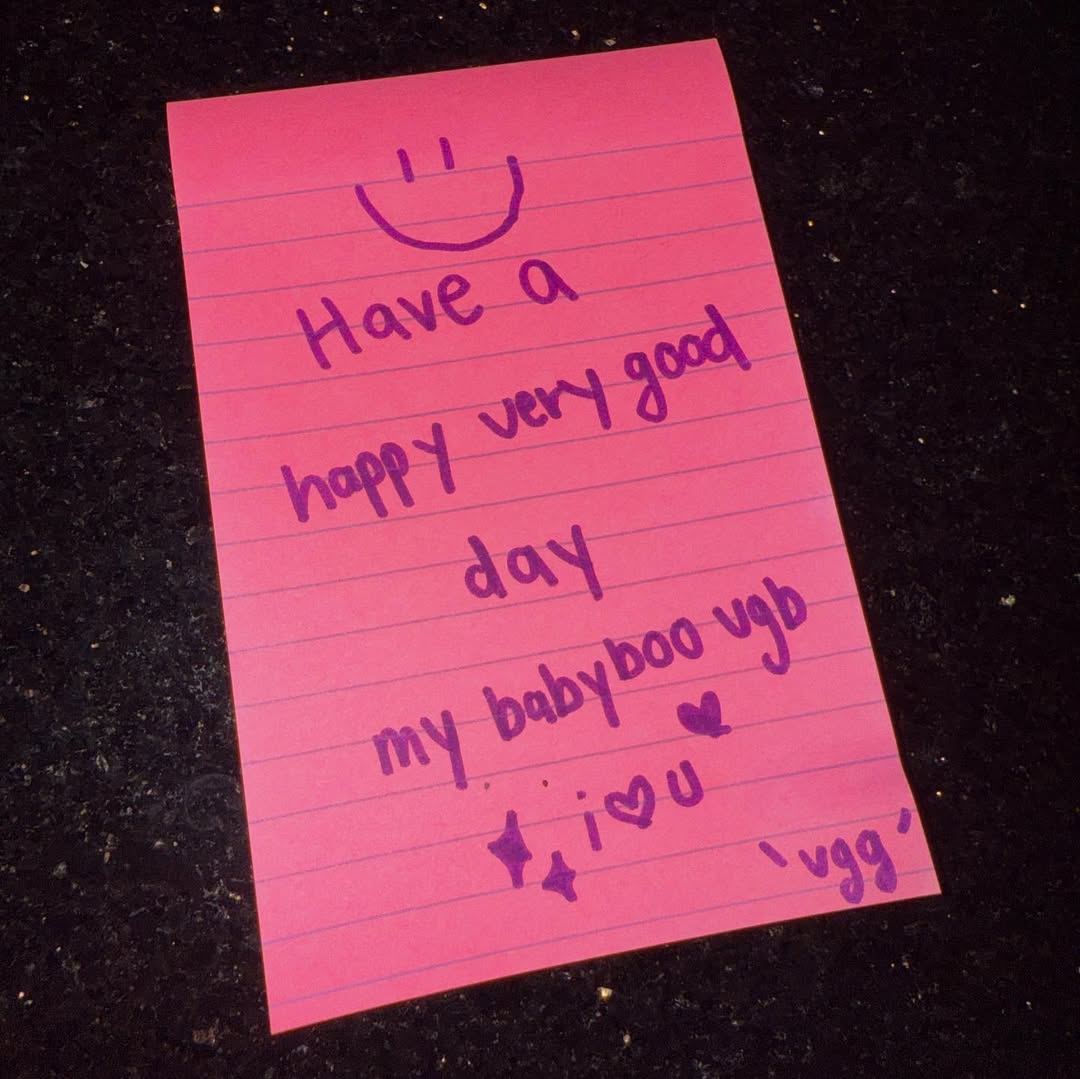 Have a
happy very good
day
my babyboo vgb
i ♥ u
'vgg'